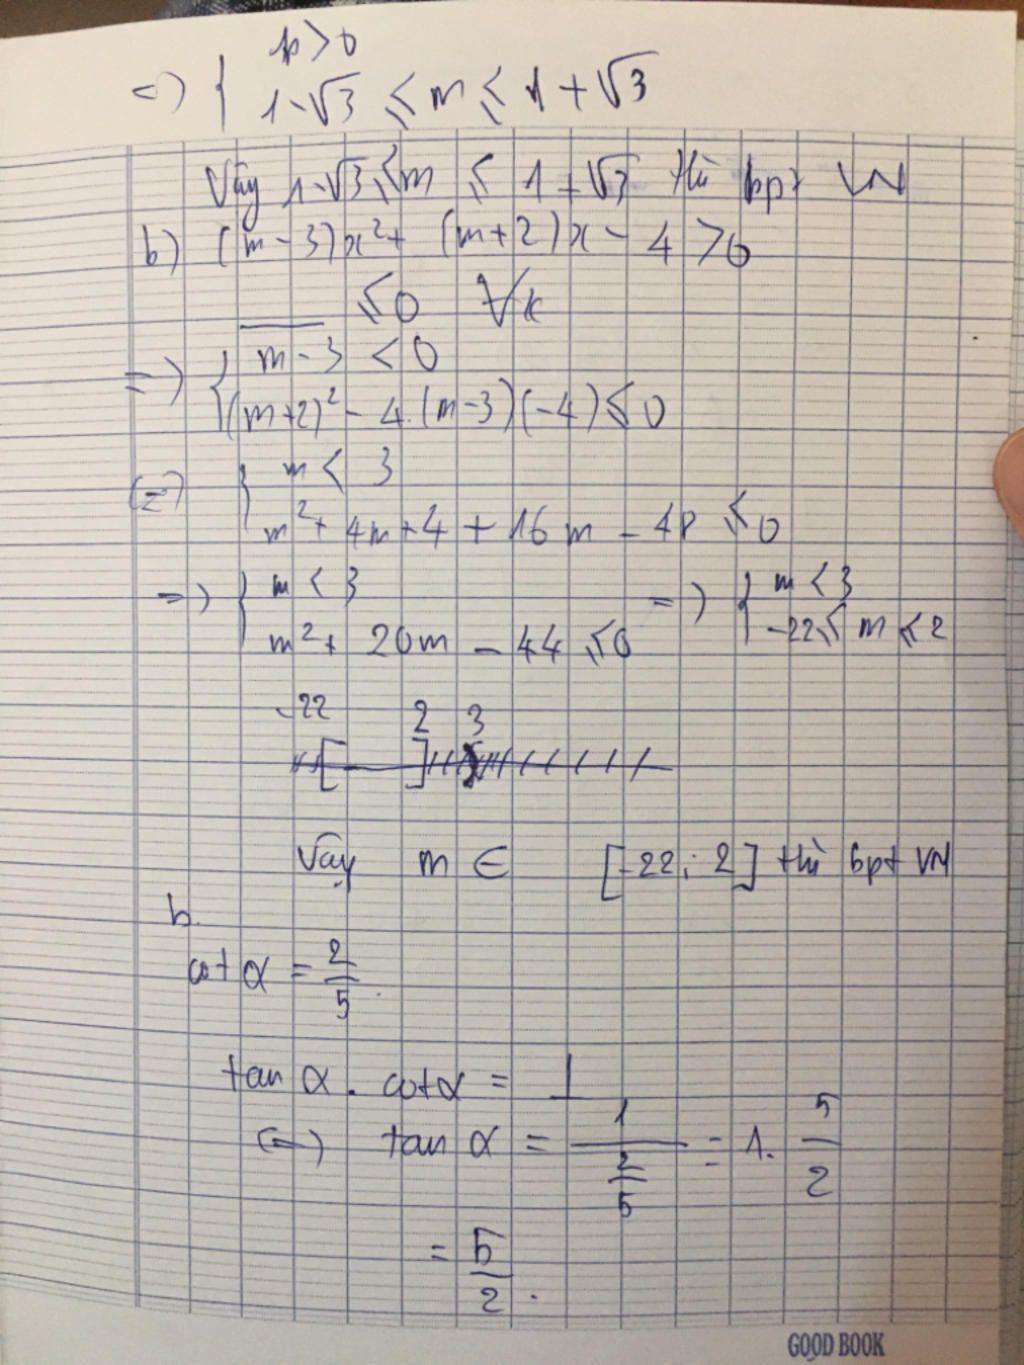 <=> { 1>0
1-√3 ≤ m ≤ 1+√3
Vậy 1-√3 ≤ m ≤ 1+√3 thì bpt VN
b) (m-3)x²+ (m+2)x - 4 >0
≤0 ∀x
=> { m-3 <0
(m+2)² - 4.(m-3)(-4) ≤ 0
(=) { m < 3
m²+ 4m+4 + 16m - 48 ≤ 0
=> { m < 3
m²+ 20m - 44 ≤ 0
=> { m < 3
-22 ≤ m ≤ 2
-22 2 3
Vậy m ∈ [-22; 2] thì bpt VN
b.
cot α = 2/5.
tan α . cot α = 1
(=) tan α = 1/(2/5) = 1. 5/2
= 5/2.
GOOD BOOK